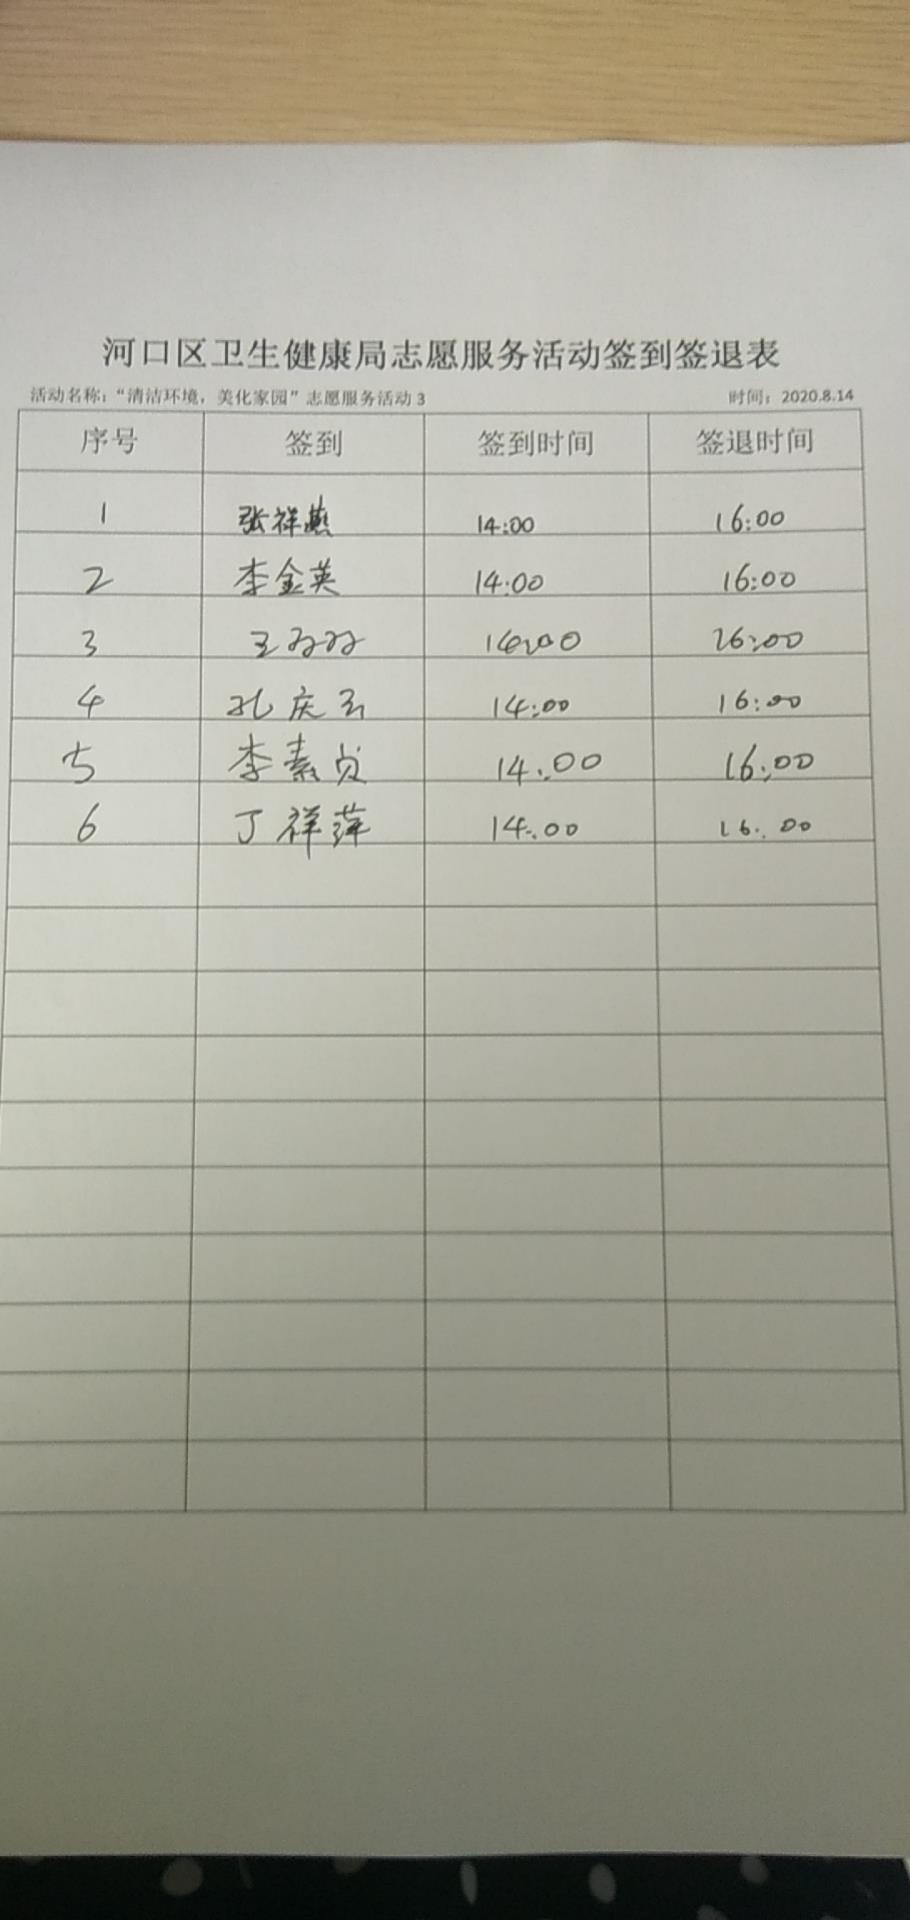 河口区卫生健康局志愿服务活动签到签退表
活动名称：“清洁环境，美化家园”志愿服务活动3 时间：2020.8.14
序号 签到 签到时间 签退时间
1 张祥燕 14:00 16:00
2 李金英 14:00 16:00
3 王 14:00 16:00
4 孔庆云 14:00 16:00
5 李素贞 14:00 16:00
6 丁祥萍 14:00 16:00